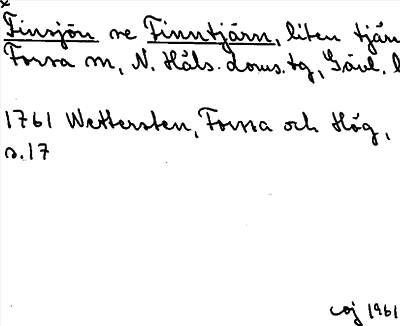 Finsjön se Finntjärn, liten tjärn
Forsa sn, N. Häls. doms.tg, Gävl. l
1761 Wettersten, Forsa och Hög,
s.17
coj 1961